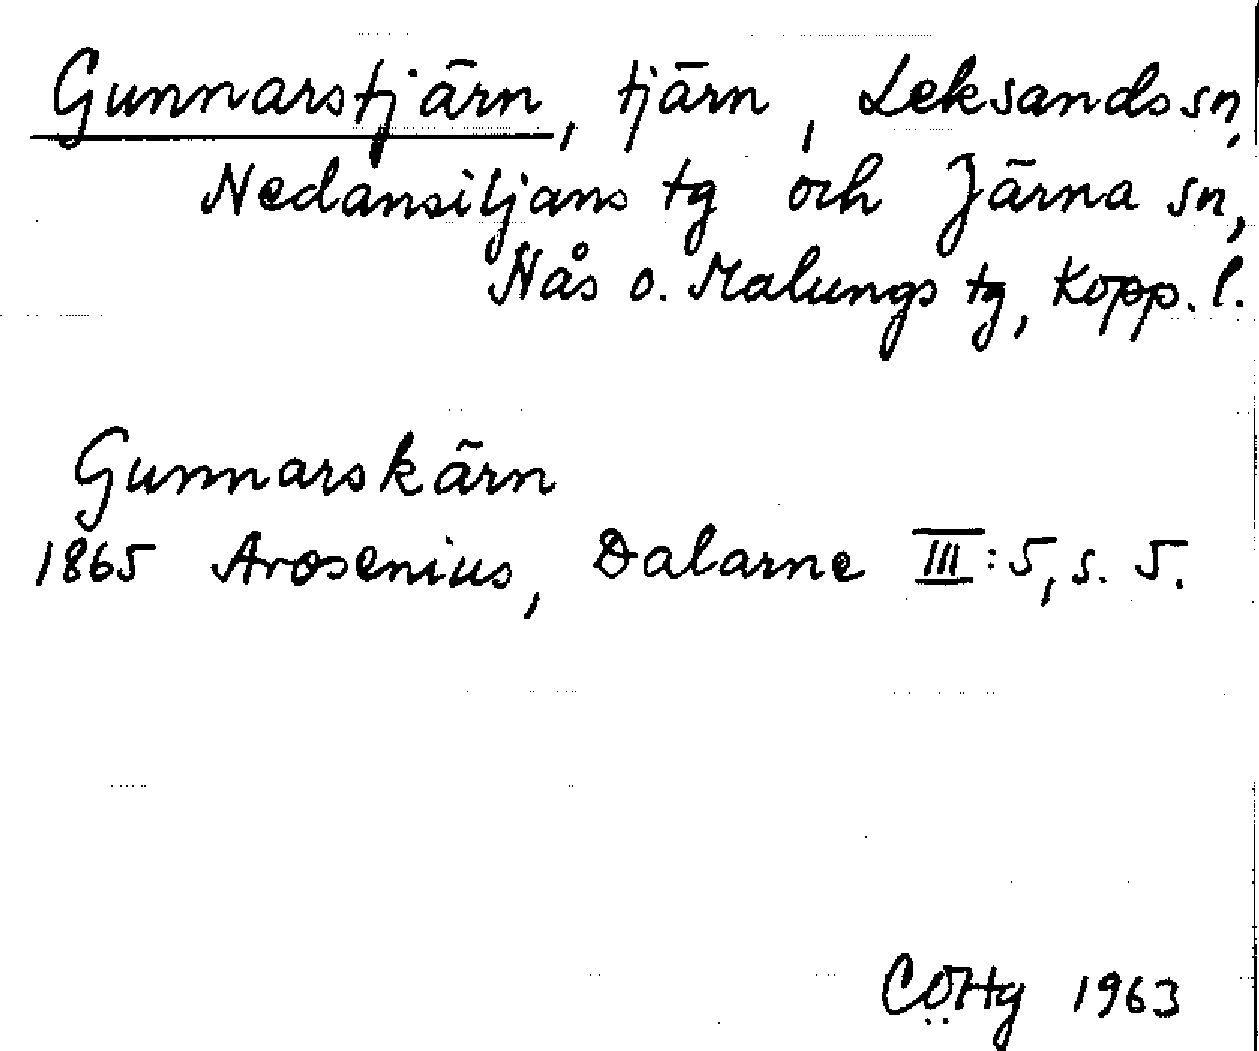 Gunnarstjärn, tjärn, Leksands sn,
Nedansiljans tg och Järna sn,
Nås o. Malungs tg, Kopp. l.
Gunnarskärn
1865 Arosenius, Dalarne III:5, s. 5.
CÖHg 1963